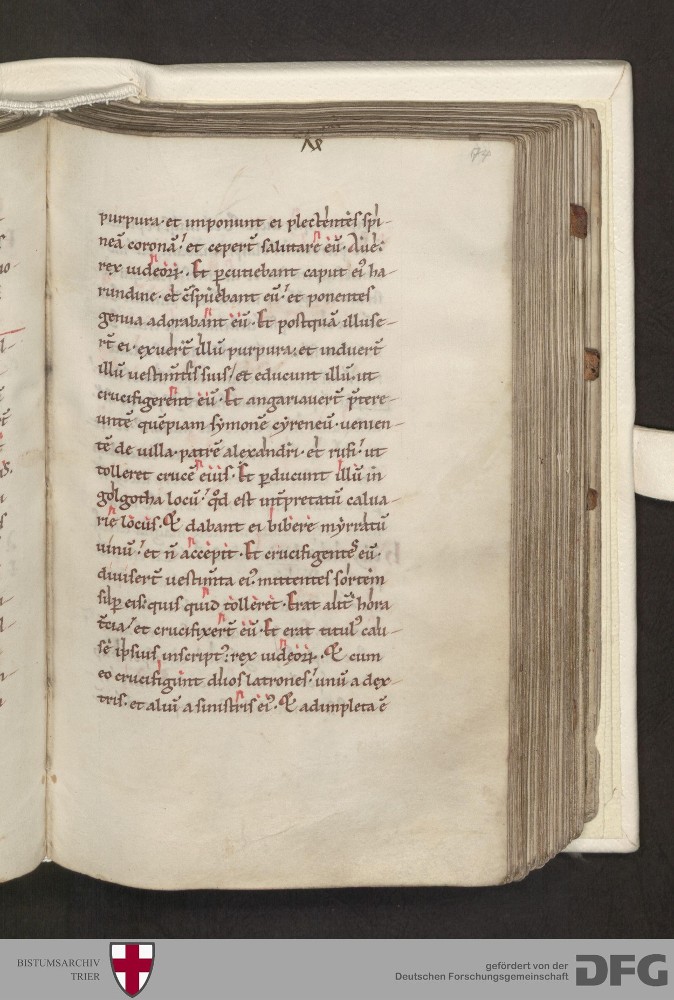 74
purpura· et imponunt ei plectentes spi-
neā coronā· et ceperт̄ salutare eū· Aue·
rex iudeoꝝ· Et ꝑcutiebant caput ei᾽ ha-
rundine· et c̄spuebant eū· et ponentes
genua adorabant eū· Et postquā illuse-
rт̄ ei· exuerт̄ illū purpura· et induerт̄
illū uestim̄tis suis· et educunt illū· ut
crucifigerent eū· Et angariauerт̄ p̄tere-
untē quēpiam symonē cyreneū· uenien-
tē de uilla· patrē alexandri· et rufi· ut
tolleret crucē eius· Et ꝑducunt illū in
golgotha locū· qd̄ est int̄pretatū calua-
rię locus· Et dabant ei bibere myrratū
uinū· et n̄ accepit· Et crucifigentes eū·
diuiserт̄ uestim̄ta ei᾽· mittentes sortem
suꝑ eis· quis quid tolleret· Erat aut̄ hora
t̄cia· et crucifixerт̄ eū· Et erat titul᾽ cau-
sę ipsius inscript᾽· rex iudeoꝝ· Et cum
eo crucifigunt duos latrones· unū a dex-
tris· et aliū a sinistris ei᾽· Et adimpleta ē
BISTUMSARCHIV
TRIER
gefördert von der
Deutschen Forschungsgemeinschaft
DFG